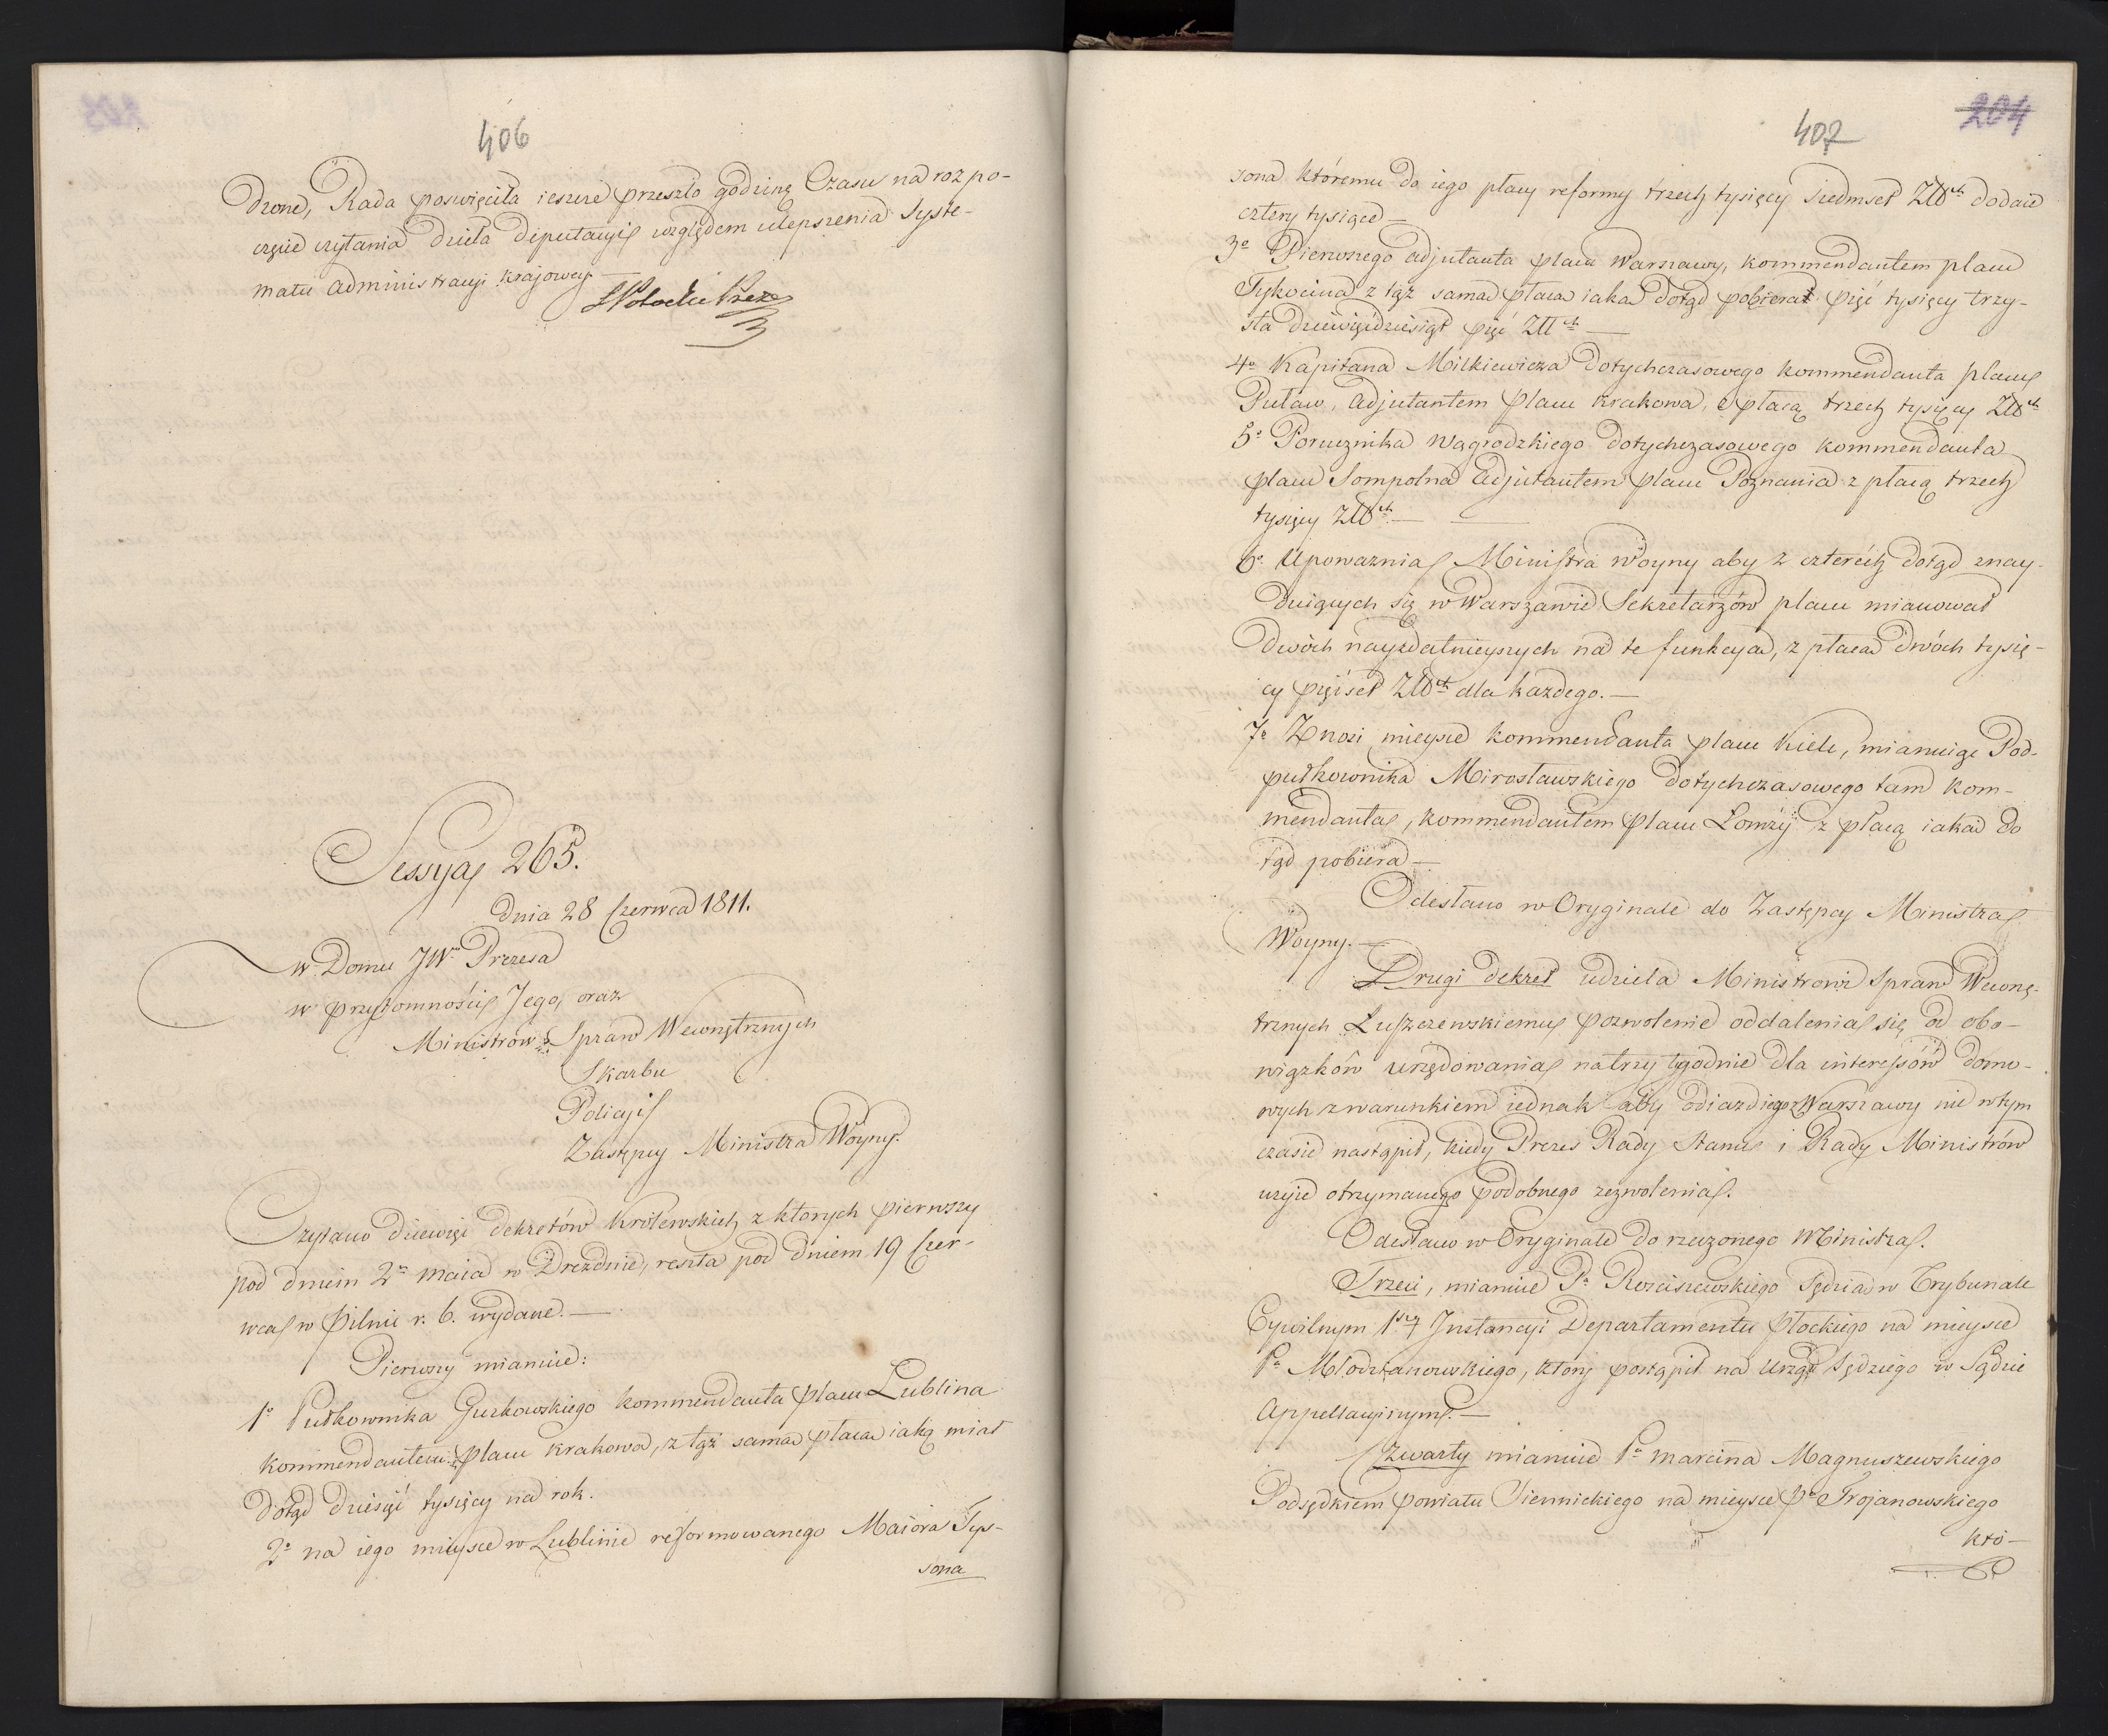 406
dzone, Rada poswięciła ieszcze przeszło godzinę Czasu na rozpo-
częcie czytania dzieła Deputacyi względem ulepszenia Syste-
matu administracyi krajowey.
SPotocki Prezes
Sessya 265.
dnia 28 Czerwca 1811.
w Domu JW° Prezesa
w przytomności Jego, oraz
Ministrów: Spraw Wewnętrznych
Skarbu
Policyi
Zastępcy Ministra Woyny.
Czytano dziewięć dekretów Królewskich z których pierwszy
pod dniem 2° maia w Dreźdnie, reszta pod dniem 19 Czer-
wca w Pilnic r. b. wydane.—
Pierwszy mianuie:
1° Pułkownika Gurkowskiego kommendanta placu Lublina
kommendantem placu Krakowa, z tąż samą płacą iaką miał
dotąd dziesięć tysięcy na rok.
2° na iego mieysce w Lublinie reformowanego Maiora Tys-
sona
204
407
sona któremu do iego płacy reformy trzech tysięcy siedmset Złłch dodaie
cztery tysiące—
3° Pierwszego adjutanta placu Warszawy, kommendantem placu
Tykocina z tąż samą płacą iaką dotąd pobierał pięć tysięcy trzy-
sta dziewięćdziesiąt pięć Złłch—
4° Kapitana Milkiewicza dotychczasowego kommendanta placu
Puław, adjutantem placu Krakowa, z płacą trzech tysięcy Złłch
5° Porucznika Wągrodzkiego dotychczasowego kommendanta
placu Sompolna Adjutantem placu Poznania z płacą trzech
tysięcy Złłch—
6° Upoważnia Ministra Woyny aby z czterech dotąd znay-
duiących się w Warszawie Sekretarzów placu mianował
dwóch nayzdatnieyszych na te funkcya, z płacą dwóch tysię-
cy pięćset Złłch dla każdego.—
7° Znosi mieysce kommendanta placu Kielc, mianuiąc Pod-
pułkownika Mirosławskiego dotychczasowego tam kom-
mendanta, kommendantem placu Łomży z płacą iaką do
tąd pobiera—
Odesłano w Oryginale do Zastępcy Ministra
Woyny.—
Drugi dekret udziela Ministrowi Spraw Wewnę-
trznych Łuszczewskiemu pozwolenie oddalenia się od obo-
wiązków urzędowania na trzy tygodnie dla interessów domo-
wych z warunkiem iednak aby odiazd iego z Warszawy nie w tym
czasie nastąpił, kiedy Prezes Rady Stanu i Rady Ministrów
użyie otrzymanego podobnego zezwolenia.
Odesłano w Oryginale do rzeczonego Ministra.
Trzeci, mianuie P° Rościszewskiego Sędzią w Trybunale
Cywilnym 1szey Instancyi Departamentu Płockiego na mieysce
P° Młodzianowskiego, który postąpił na Urząd Sędziego w Sądzie
Appellacyinym.—
Czwarty mianuie P° Marcina Magnuszewskiego
Podsędkiem powiatu Siennickiego na mieysce P° Trojanowskiego
któ-